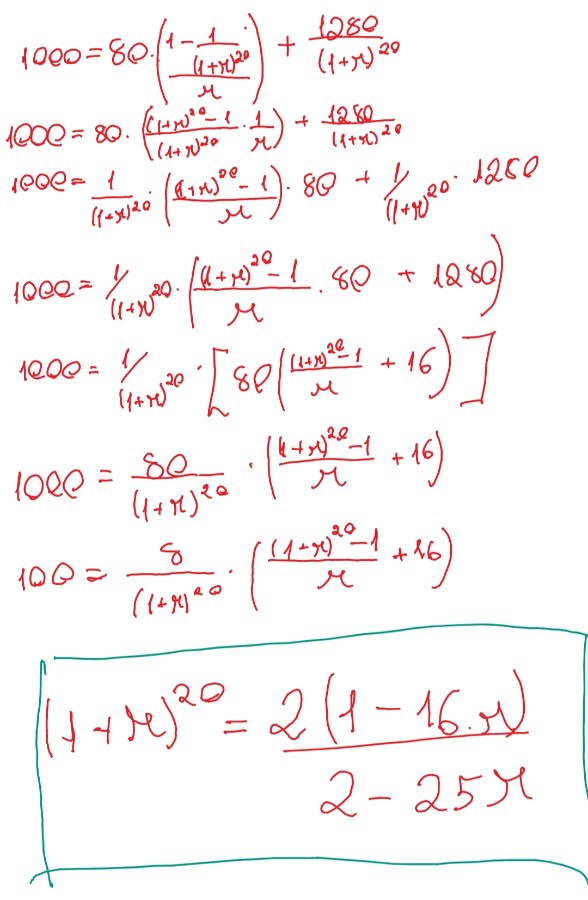 1000 = 80 · ((1 - 1/(1+r)^20)/r) + 1280/(1+r)^20
1000 = 80 · (((1+r)^20 - 1)/(1+r)^20 · 1/r) + 1280/(1+r)^20
1000 = 1/(1+r)^20 · (((1+r)^20 - 1)/r) · 80 + 1/(1+r)^20 · 1280
1000 = 1/(1+r)^20 · (((1+r)^20 - 1)/r · 80 + 1280)
1000 = 1/(1+r)^20 · [80(((1+r)^20 - 1)/r + 16)]
1000 = 80/(1+r)^20 · (((1+r)^20 - 1)/r + 16)
100 = 8/(1+r)^20 · (((1+r)^20 - 1)/r + 16)
(1+r)^20 = 2(1 - 16.r)/(2 - 25r)